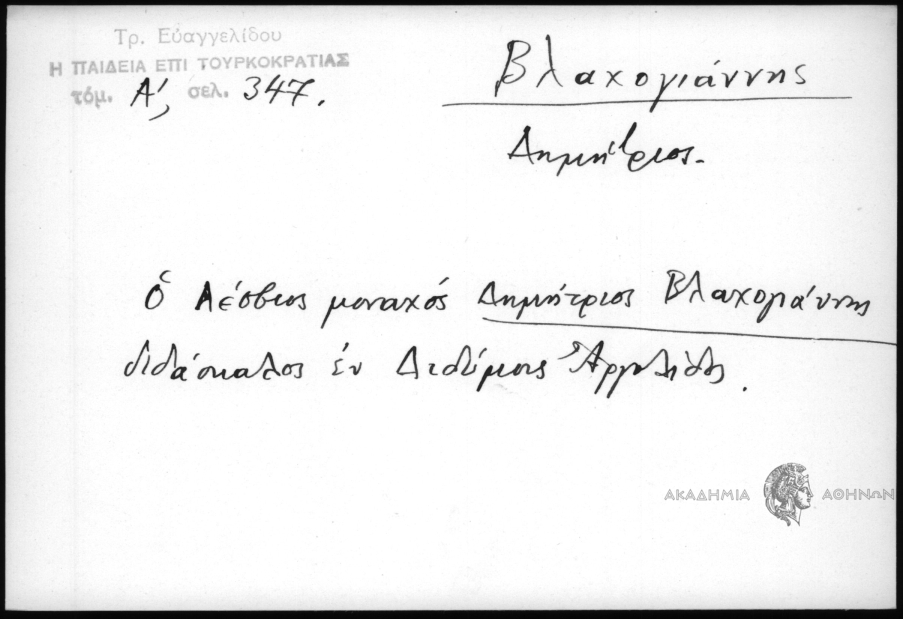 Τρ. Εὐαγγελίδου
Η ΠΑΙΔΕΙΑ ΕΠΙ ΤΟΥΡΚΟΚΡΑΤΙΑΣ
τόμ. Α', σελ. 347.
Βλαχογιάννης
Δημήτριος.
Ὁ Λέσβιος μοναχός Δημήτριος Βλαχογιάννης
διδάσκαλος ἐν Διδύμοις Ἀργολίδος.
ΑΚΑΔΗΜΙΑ ΑΘΗΝΩΝ